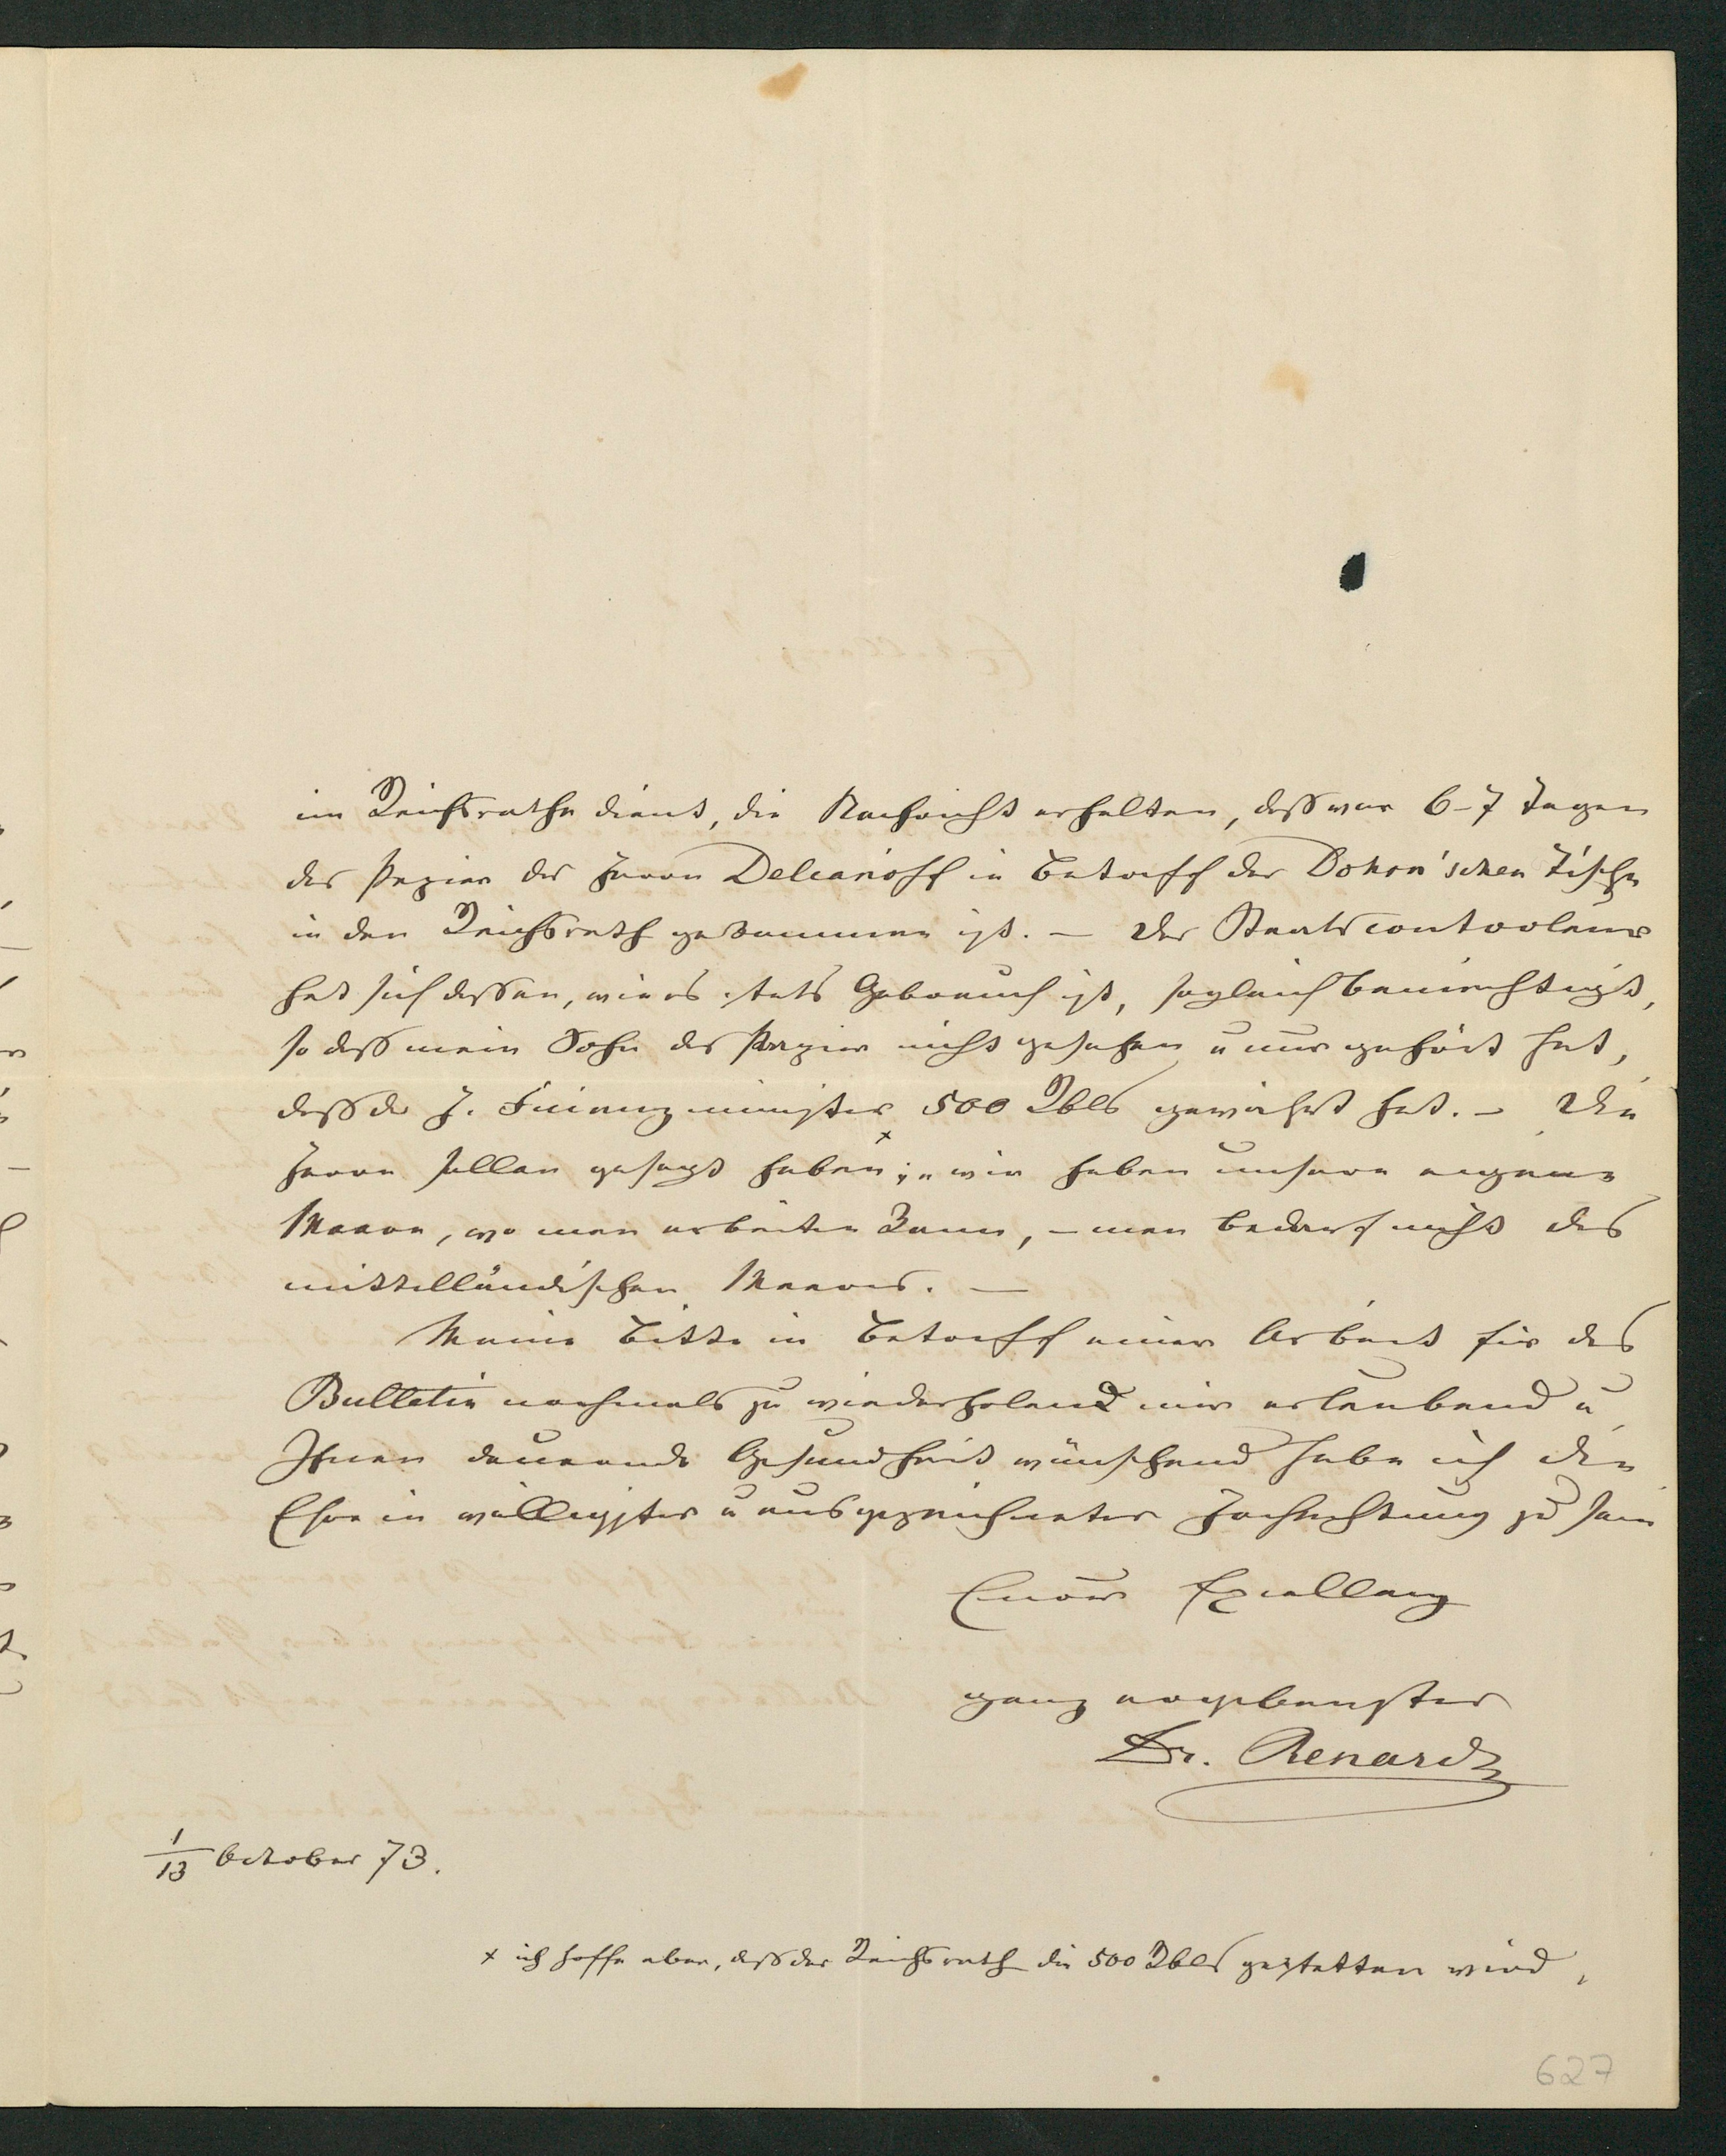 im Reichsrathe dient, die Nachricht erhalten, daß vor 6–7 Tagen
das Papier des Herrn Delianoff in Betreff der Dohrn'schen Tische
in den Reichsrath gekommen ist. — Der Staatscontroleur
hat sich dessen, wie es stets Gebrauch ist, sogleich bemächtigt,
so daß mein Sohn das Papier nicht gesehen u nur gehört hat,
daß der H. Finanzminister 500 Rbls gewährt hat. — Die
Herrn sollen gesagt haben ×; „wir haben unsere eigene
Meere, wo man arbeiten kann, — man bedarf nicht des
mittelländischen Meeres. —
Meine Bitte in Betreff einer Arbeit für das
Bulletin nochmals zu wiederholend mir erlaubend u
Ihnen dauernde Gesundheit wünschend habe ich die
Ehre in völligster u ausgezeichneter Hochachtung zu sein
Eurer Excellenz
ganz ergebenster
Dr. Renard
1/13 October 73.
× ich hoffe aber, daß der Reichsrath die 500 Rbls gestatten wird,
627